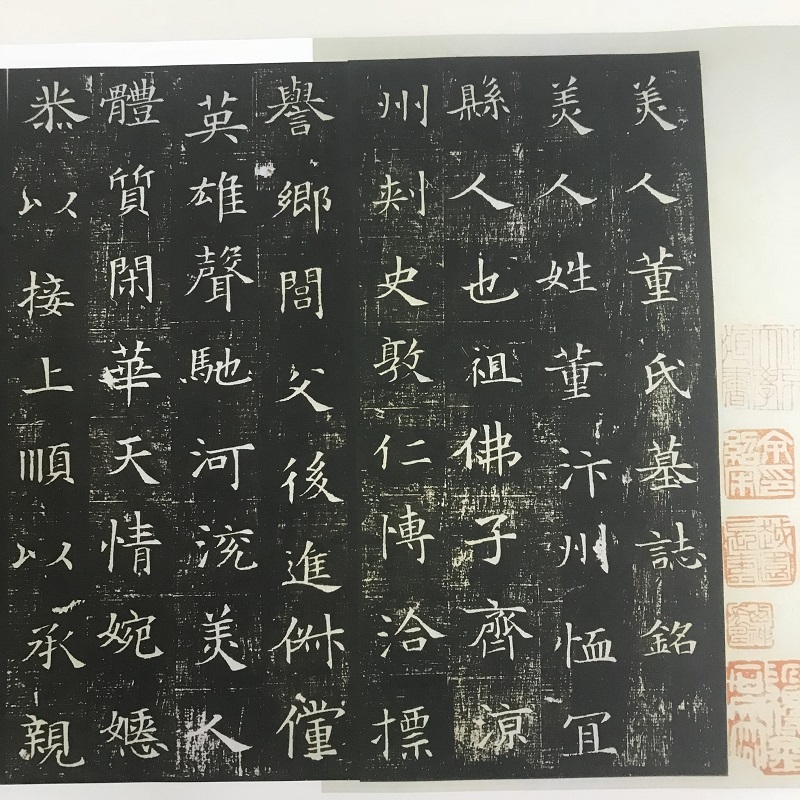 美人董氏墓誌銘
美人姓董汴州恤冝
縣人也祖佛子齊涼
州刺史敦仁博洽摽
譽鄉閭父後進俶儻
英雄聲馳河兗美人
體質閑華天情婉嫕
恭以接上順以承親